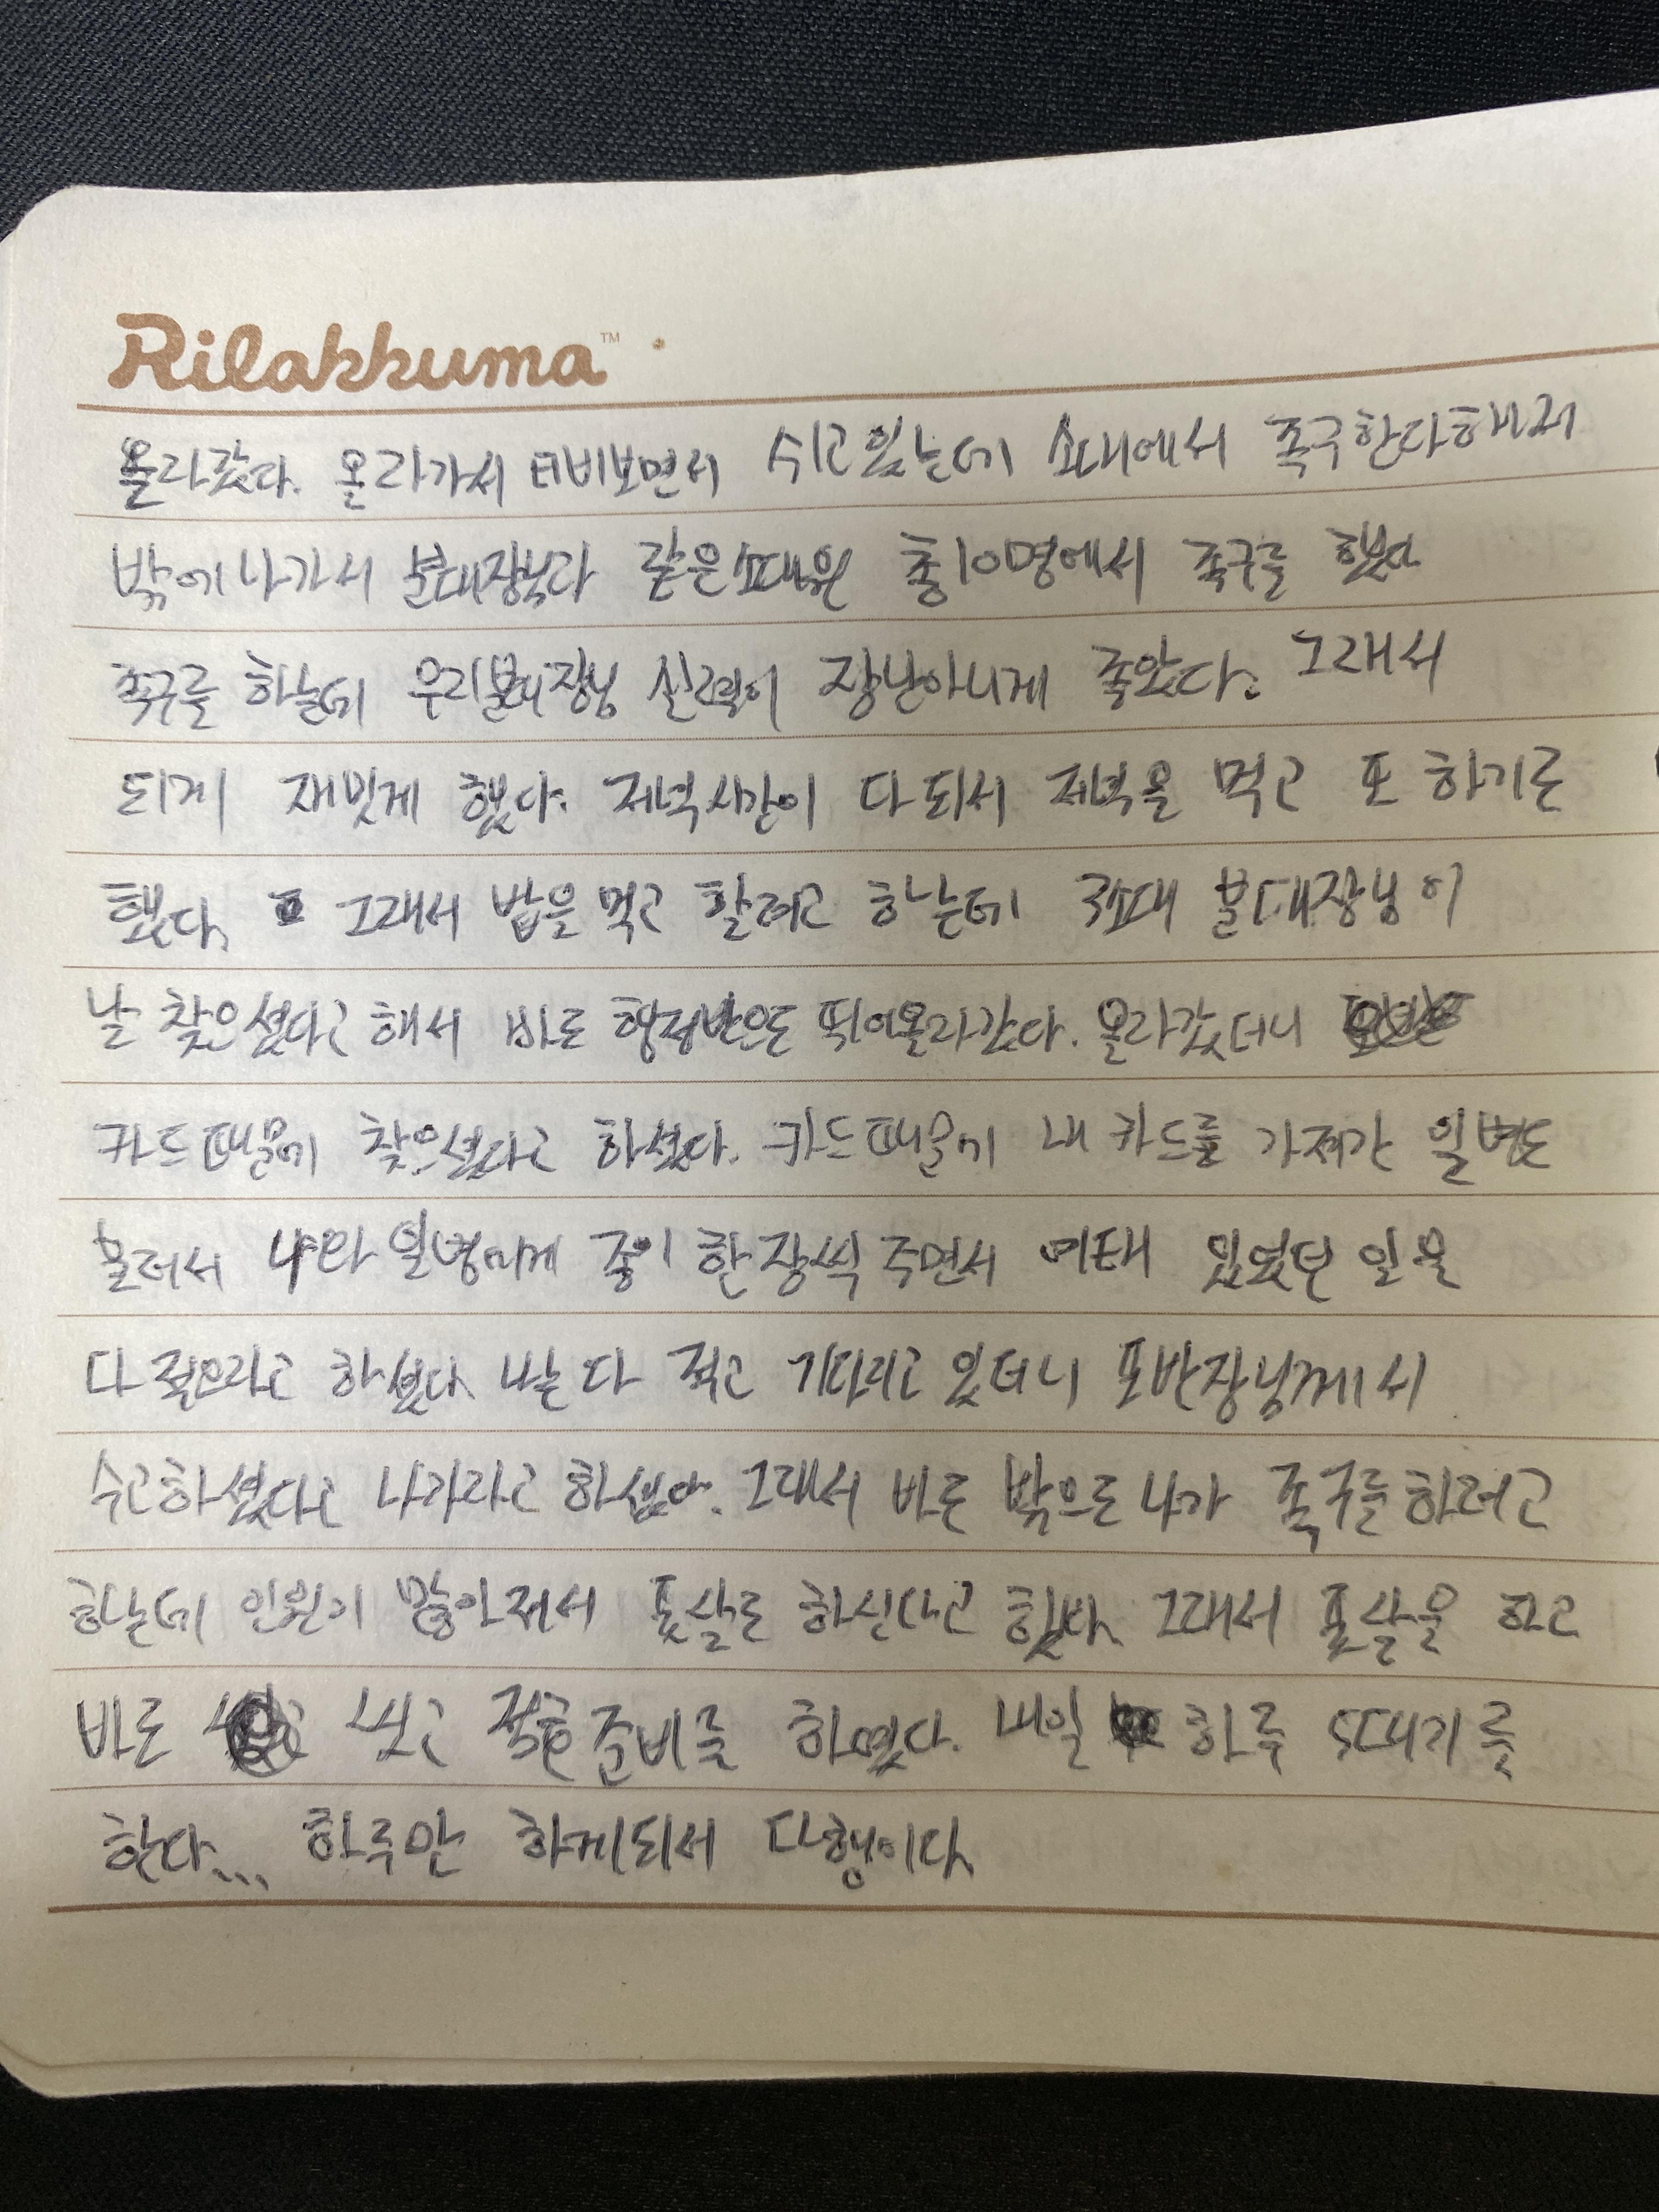 Rilakkuma™
올라갔다. 올라가서 티비보면서 쉬고있는데 소대에서 족구한다해서
밖에나가서 분대장님과 같은소대원 총10명에서 족구를 했다
족구를 하는데 우리분대장님 실력이 장난아니게 좋았다. 그래서
되게 재밋게 했다. 저녁시간이 다되서 저녁을 먹고 또 하기로
했다. 그래서 밥을먹고 할려고 하는데 3소대 분대장님이
날 찾으셨다고 해서 바로 행정반으로 뛰어올라갔다. 올라갔더니
카드때문에 찾으셨다고 하셨다. 카드때문에 내 카드를 가져간 일병도
불려서 나와 일병에게 종이 한장씩 주면서 여태 있었던 일을
다 적으라고 하셨다. 나는 다 적고 기다리고 있더니 포반장님께서
수고하셨다고 나가라고 하셨다. 그래서 바로 밖으로 나가 족구를하려고
하는데 인원이 많아져서 풋살로 하신다고 했다. 그래서 풋살을 하고
바로 씻고 점호준비를 하였다. 내일 하루 5대기를
한다... 하루만 하게되서 다행이다.